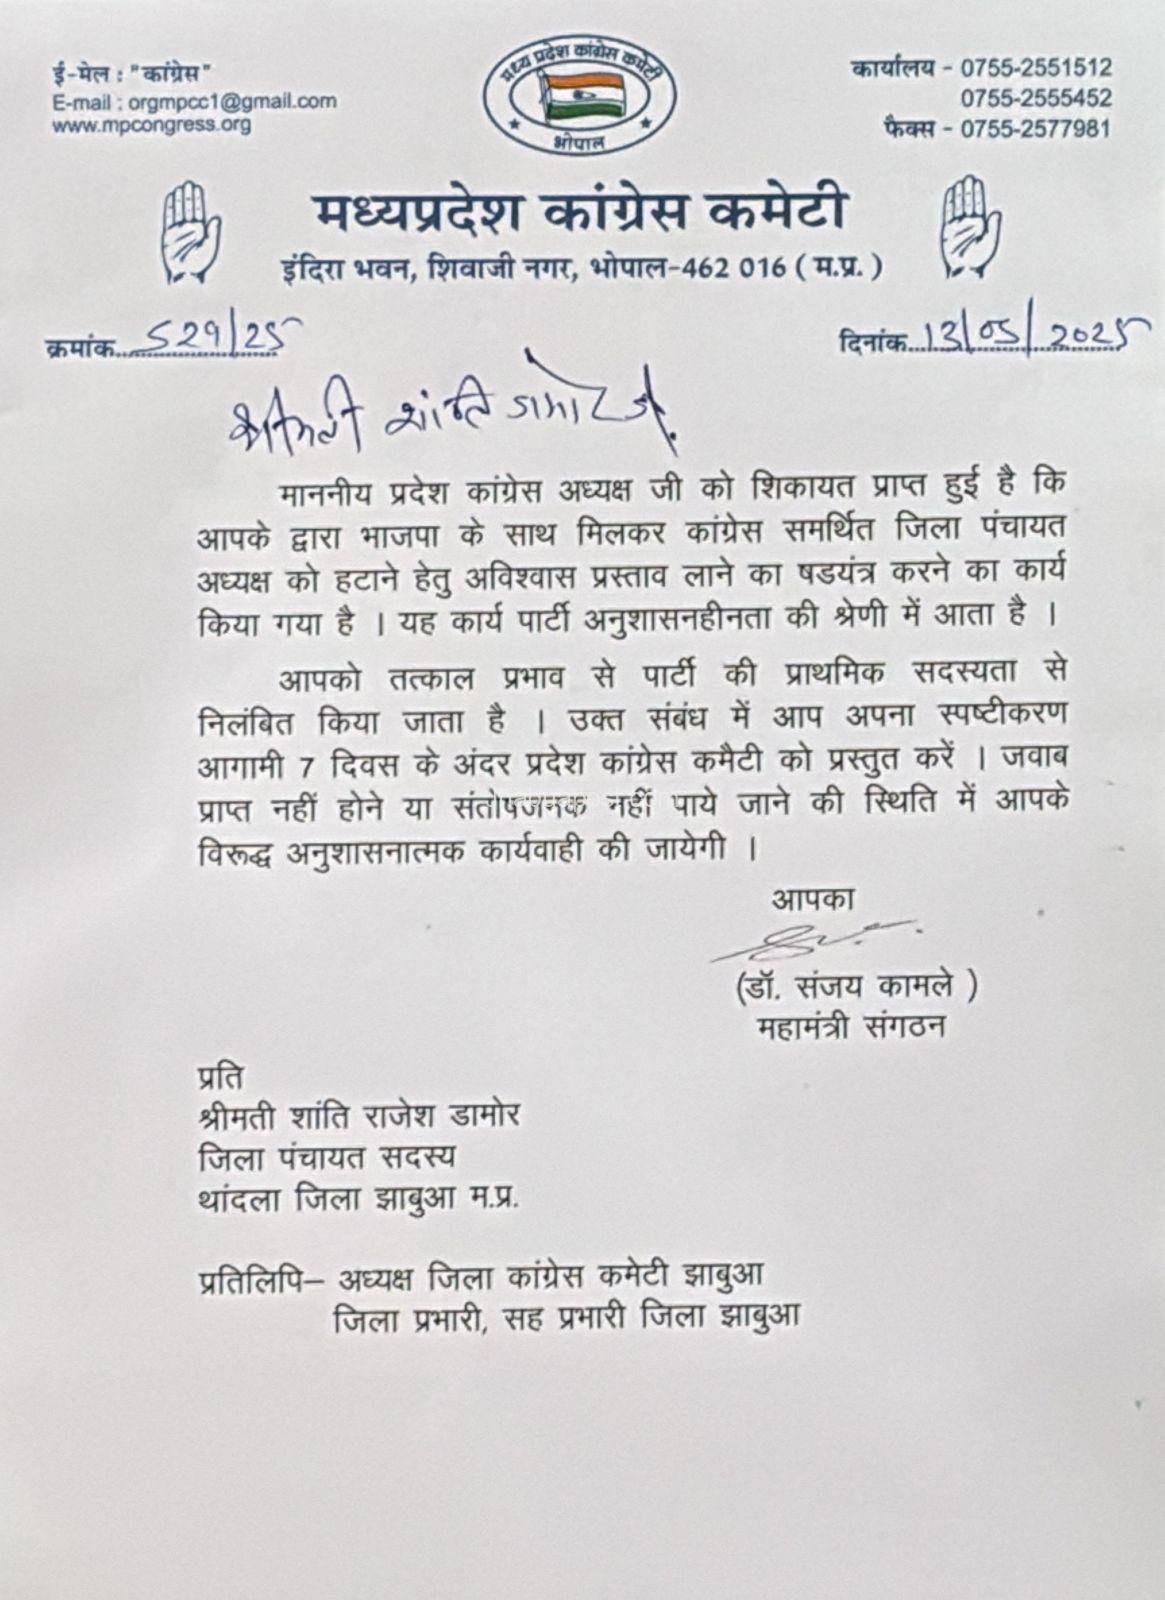 ई-मेल : "कांग्रेस"
E-mail : orgmpcc1@gmail.com
www.mpcongress.org
मध्य प्रदेश कांग्रेस कमेटी
भोपाल
कार्यालय - 0755-2551512
0755-2555452
फैक्स - 0755-2577981
मध्यप्रदेश कांग्रेस कमेटी
इंदिरा भवन, शिवाजी नगर, भोपाल-462 016 ( म.प्र. )
क्रमांक 529/25
दिनांक 13/05/2025
श्रीमती शांति डामोर जी.
माननीय प्रदेश कांग्रेस अध्यक्ष जी को शिकायत प्राप्त हुई है कि
आपके द्वारा भाजपा के साथ मिलकर कांग्रेस समर्थित जिला पंचायत
अध्यक्ष को हटाने हेतु अविश्वास प्रस्ताव लाने का षडयंत्र करने का कार्य
किया गया है । यह कार्य पार्टी अनुशासनहीनता की श्रेणी में आता है ।
आपको तत्काल प्रभाव से पार्टी की प्राथमिक सदस्यता से
निलंबित किया जाता है । उक्त संबंध में आप अपना स्पष्टीकरण
आगामी 7 दिवस के अंदर प्रदेश कांग्रेस कमैटी को प्रस्तुत करें । जवाब
प्राप्त नहीं होने या संतोषजनक नहीं पाये जाने की स्थिति में आपके
विरूद्ध अनुशासनात्मक कार्यवाही की जायेगी ।
आपका
(डॉ. संजय कामले )
महामंत्री संगठन
प्रति
श्रीमती शांति राजेश डामोर
जिला पंचायत सदस्य
थांदला जिला झाबुआ म.प्र.
प्रतिलिपि– अध्यक्ष जिला कांग्रेस कमेटी झाबुआ
जिला प्रभारी, सह प्रभारी जिला झाबुआ